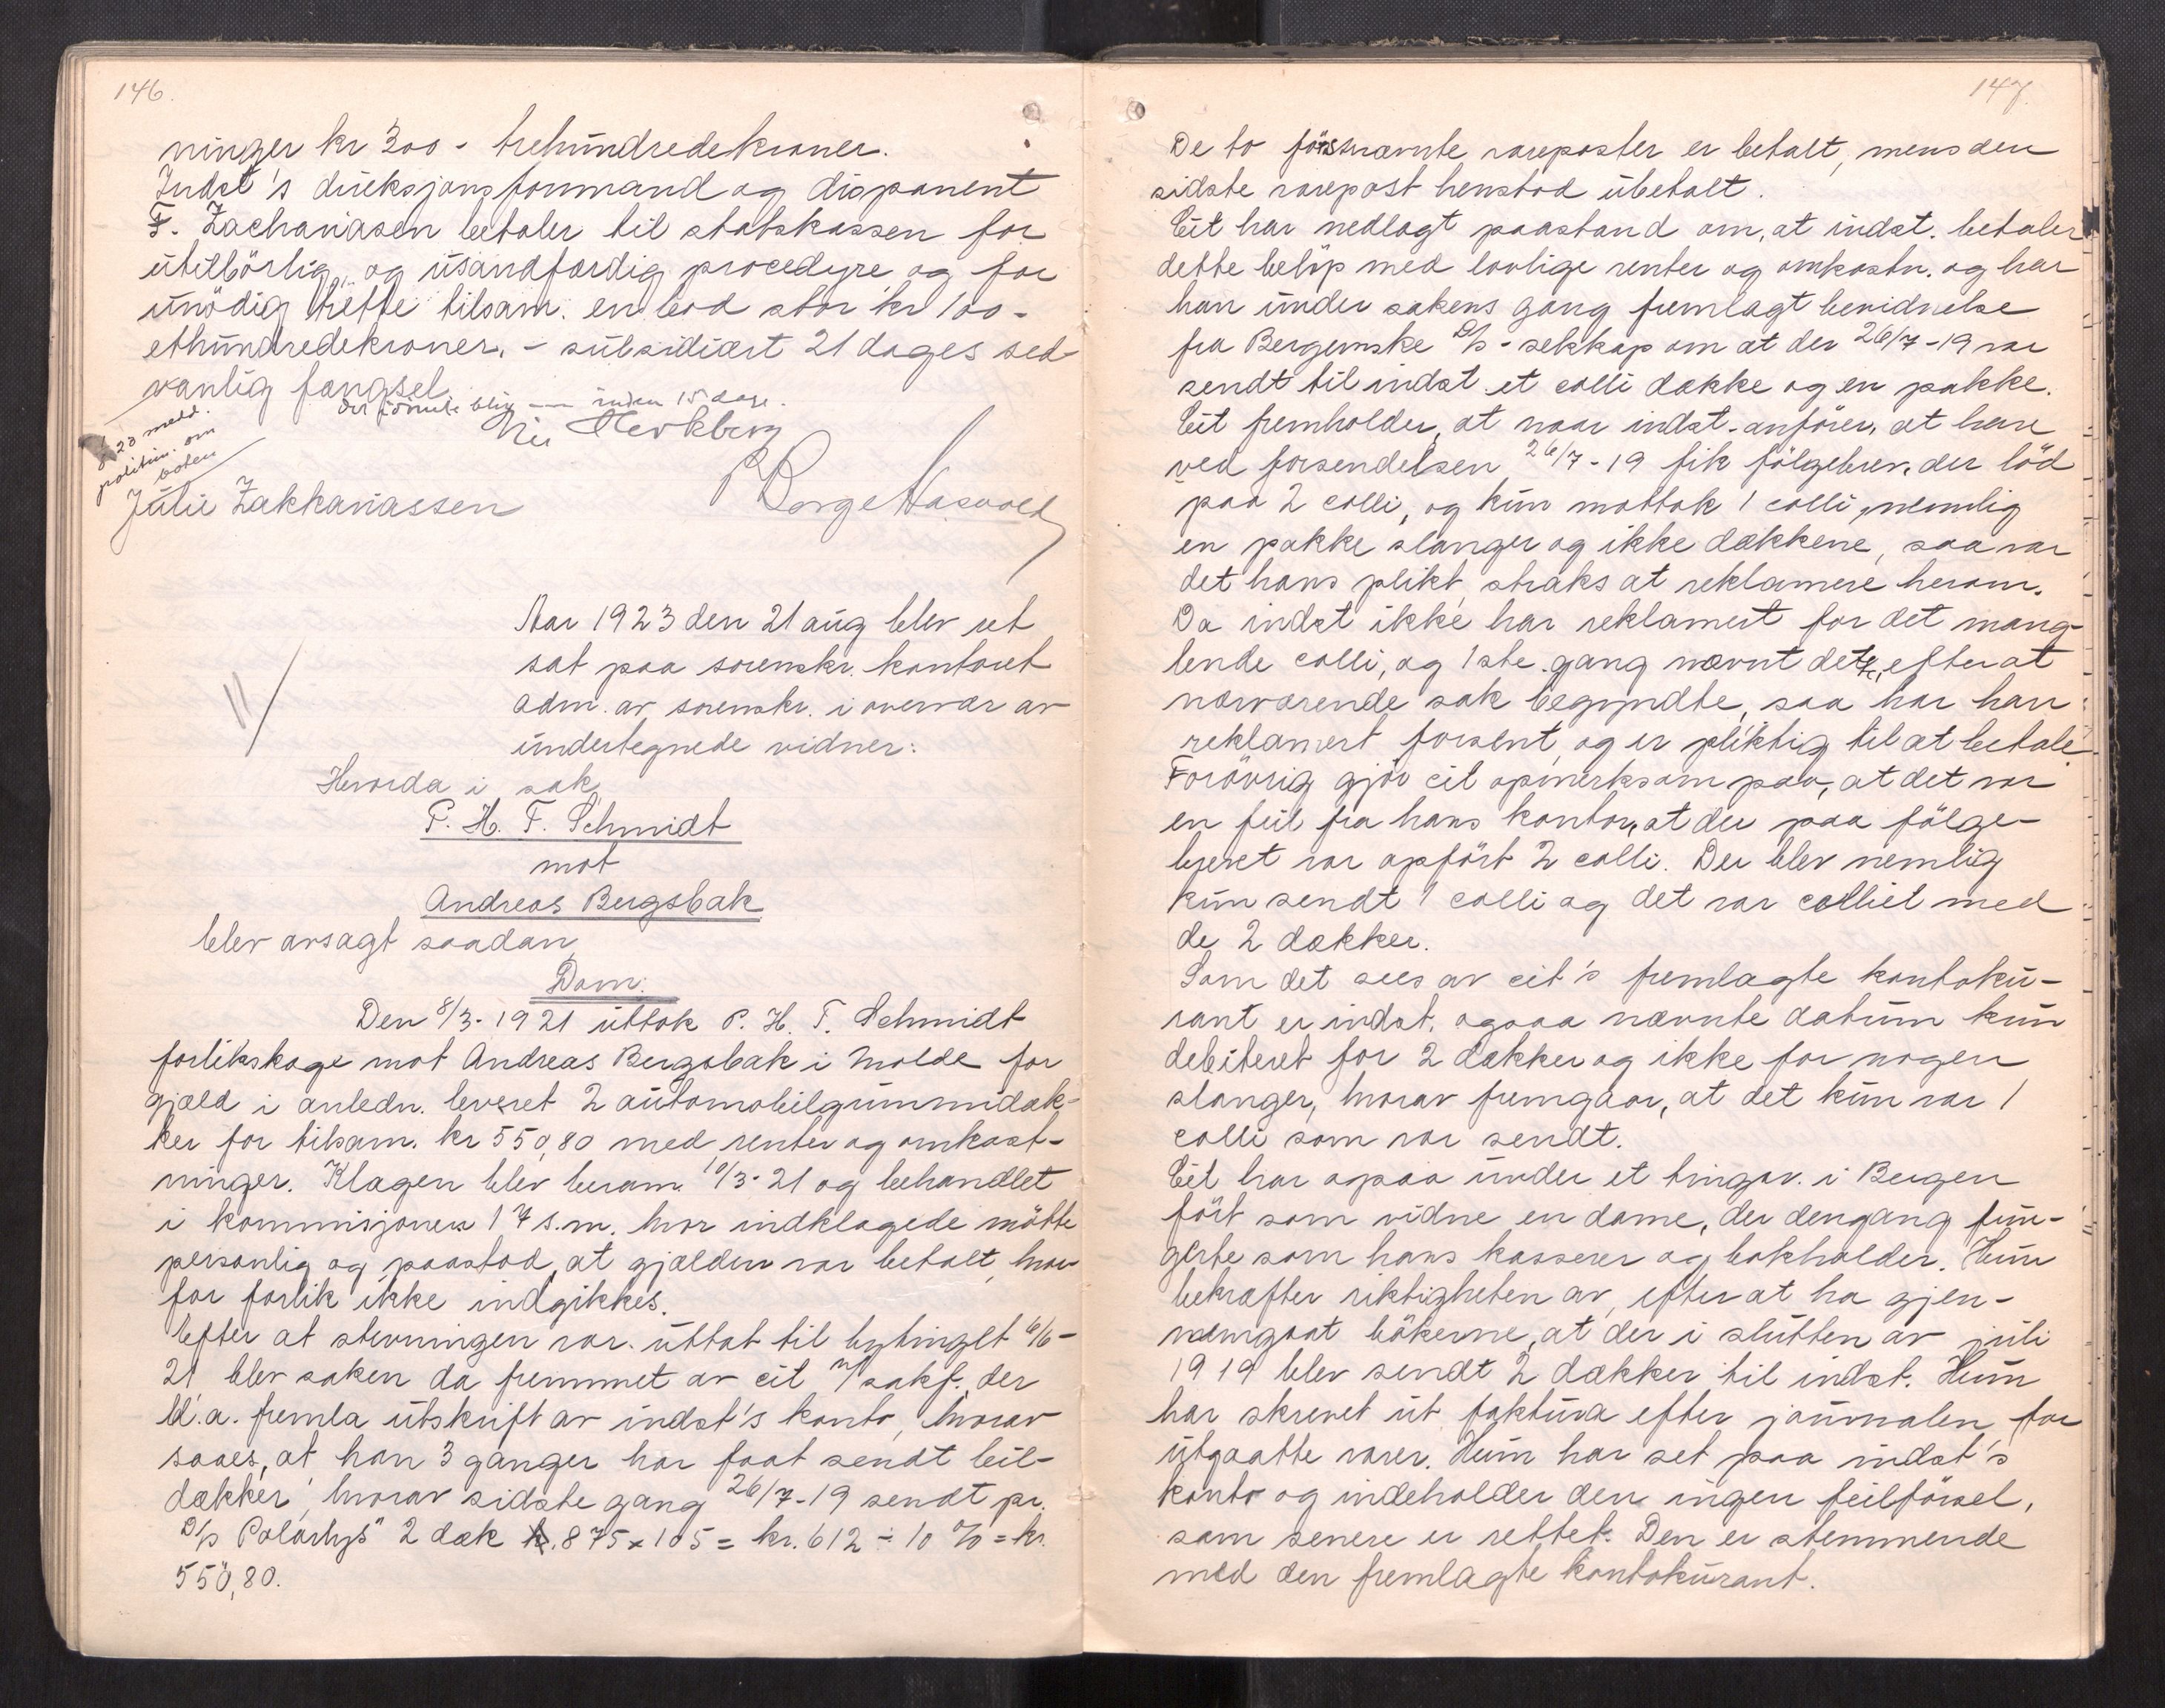 146.
ninger kr 300 - trehundredekroner.
Indst's direksjonsformand og disponent
F. Zachariasen betaler til statskassen for
utilbörlig og usandfærdig procedyre og for
unödig trette tilsam. en bod stor kr 100 -
ethundredekroner. - subsidiært 21 dages sed-
vanlig fængsel.
inden 15 dage.
23 meld.
politim. om
boten
Julie Zakkariassen
Aar 1923 den 21 aug blev ret
sat paa sorenskr. kontoret
adm. av sorenskr. i overvær av
undertegnede vidner:
11/
Hvorda i sak
P. H. F. Schmidt
mot
Andreas Bergsbak
blev avsagt saadan
Dom:
Den 8/3-1921 uttok P. H. F. Schmidt
forlikskage mot Andreas Bergsbak i Molde for
gjæld i anledn. leveret 2 automobilgummidæk-
ker for tilsam. kr 550,80 med renter og omkost-
ninger. Klagen blev beram. 10/3-21 og behandlet
i kommisjonen 17 s.m. hvor indklagede mötte
personlig og paastod, at gjælden var betalt, hvor
for forlik ikke indgikkes.
Efter at stevningen var uttat til bytinget 6/6-
21 blev saken da fremmet av cit v/ sakf. der
bl.a. fremla utskrift av indst's konto, hvorav
saaes, at han 3 ganger har faat sendt bil-
dækker, hvorav sidste gang 26/7-19 sendt pr.
D/s Polarlys" 2 dæk 875 x 105 = kr. 612 ÷ 10 % = kr.
550,80.
147.
De to förstnævnte vareposter er betalt, mens den
sidste varepost henstod ubetalt.
Cit har nedlagt paastand om, at indst. betaler
dette belöp med lovlige renter og omkostn. og har
han under sakens gang fremlagt bevidnelse
fra Bergenske D/s - selskap om at der 26/7-19 var
sendt til indst et colli dække og en pakke.
Cit fremholder, at naar indst. anförer, at han
ved forsendelsen 26/7-19 fik fölgebrev, der löd
paa 2 colli, og kun mottok 1 colli, nemlig
en pakke slanger og ikke dækkene, saa var
det hans plikt straks at reklamere herom.
Da indst ikke har reklamert for det mang-
lende colli, og 1ste gang nævnt dette, efterat
nærværende sak begyndte, saa har han
reklamert forsent, og er pliktig til at betale.
Forövrig gjör cit opmerksom paa, at det var
en feil fra hans kontor, at der paa fölge-
brevet var opfört 2 colli. Der blev nemlig
kun sendt 1 colli og det var colliet med
de 2 dækker.
Som det sees av cit's fremlagte kontoku-
rant er indst. ogsaa nævnte datum kun
debiteret for 2 dækker og ikke for nogen
slanger, hvorav fremgaar, at det kun var 1
colli som var sendt.
Cit har ogsaa under et tingsv. i Bergen
fört som vidne en dame, der dengang fun-
gerte som hans kasserer og bokholder. Hun
bekræfter riktigheten av, efter at ha gjen-
nemgaat bökerne, at der i slutten av juli
1919 blev sendt 2 dækker til indst. Hun
har skrevet ut faktura efter journalen for
utgaatte varer. Hun har set paa indst's
konto og indeholder den ingen feilförsel,
som senere er rettet. Den er stemmende
med den fremlagte kontokurant.